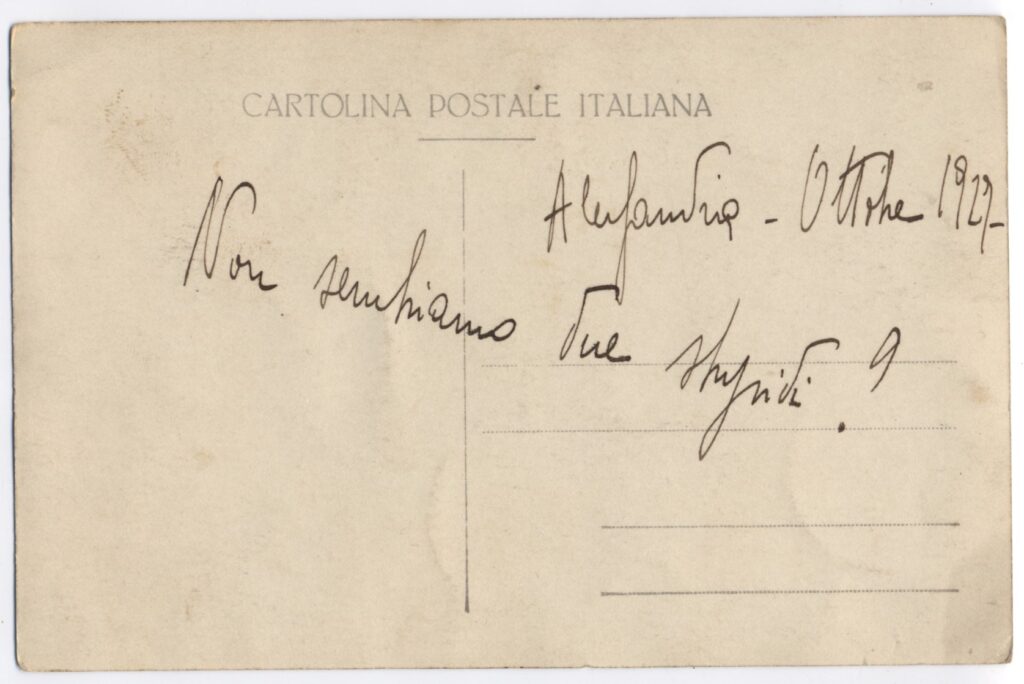 CARTOLINA POSTALE ITALIANA
Alessandria - Ottobre 1927-
Non sembriamo due stupidi?